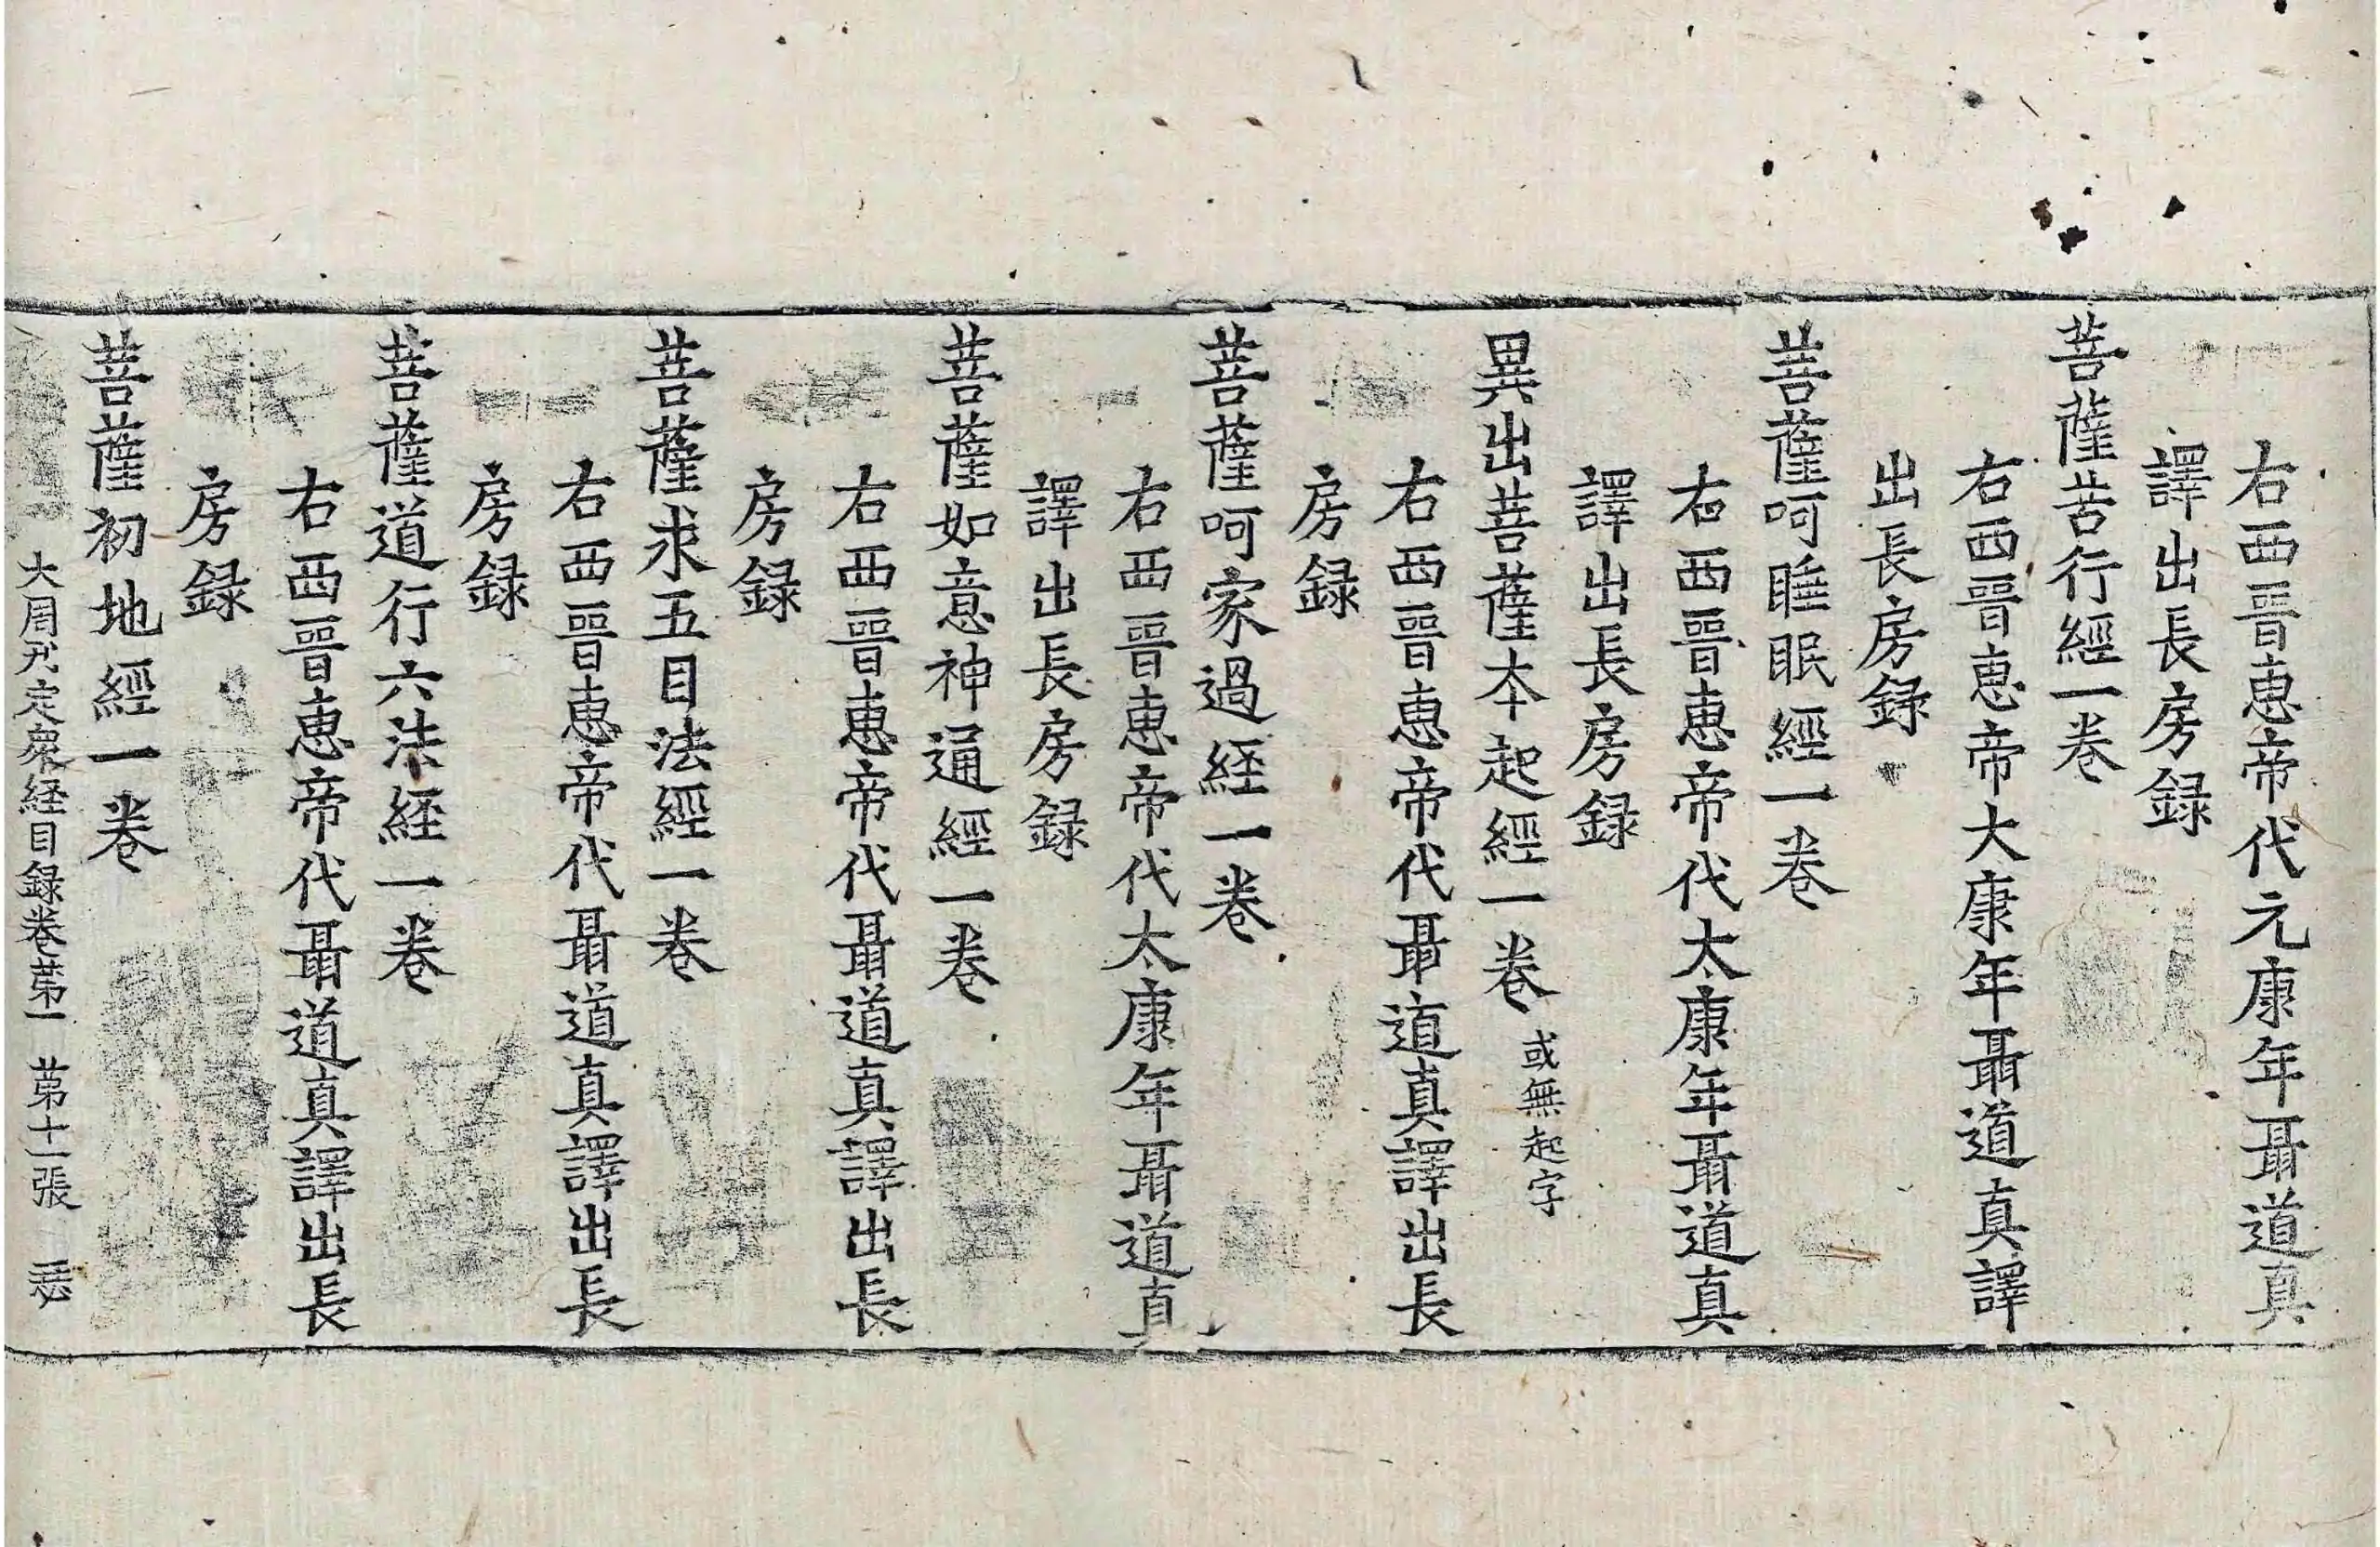 右西晉惠帝代元康年聶道真
譯出長房録
菩薩苦行經一卷
右西晉惠帝大康年聶道真譯
出長房録
菩薩呵睡眠經一卷
右西晉惠帝代太康年聶道真
譯出長房録
異出菩薩本起經一卷 或無起字
右西晉惠帝代聶道真譯出長
房録
菩薩呵家過経一卷
右西晉惠帝代太康年聶道真
譯出長房録
菩薩如意神通經一卷
右西晉惠帝代聶道真譯出長
房録
菩薩求五目法經一卷
右西晉惠帝代聶道真譯出長
房録
菩薩道行六法経一卷
右西晉惠帝代聶道真譯出長
房録
菩薩初地經一卷
大周刋定衆経目録卷苐一 苐十一張